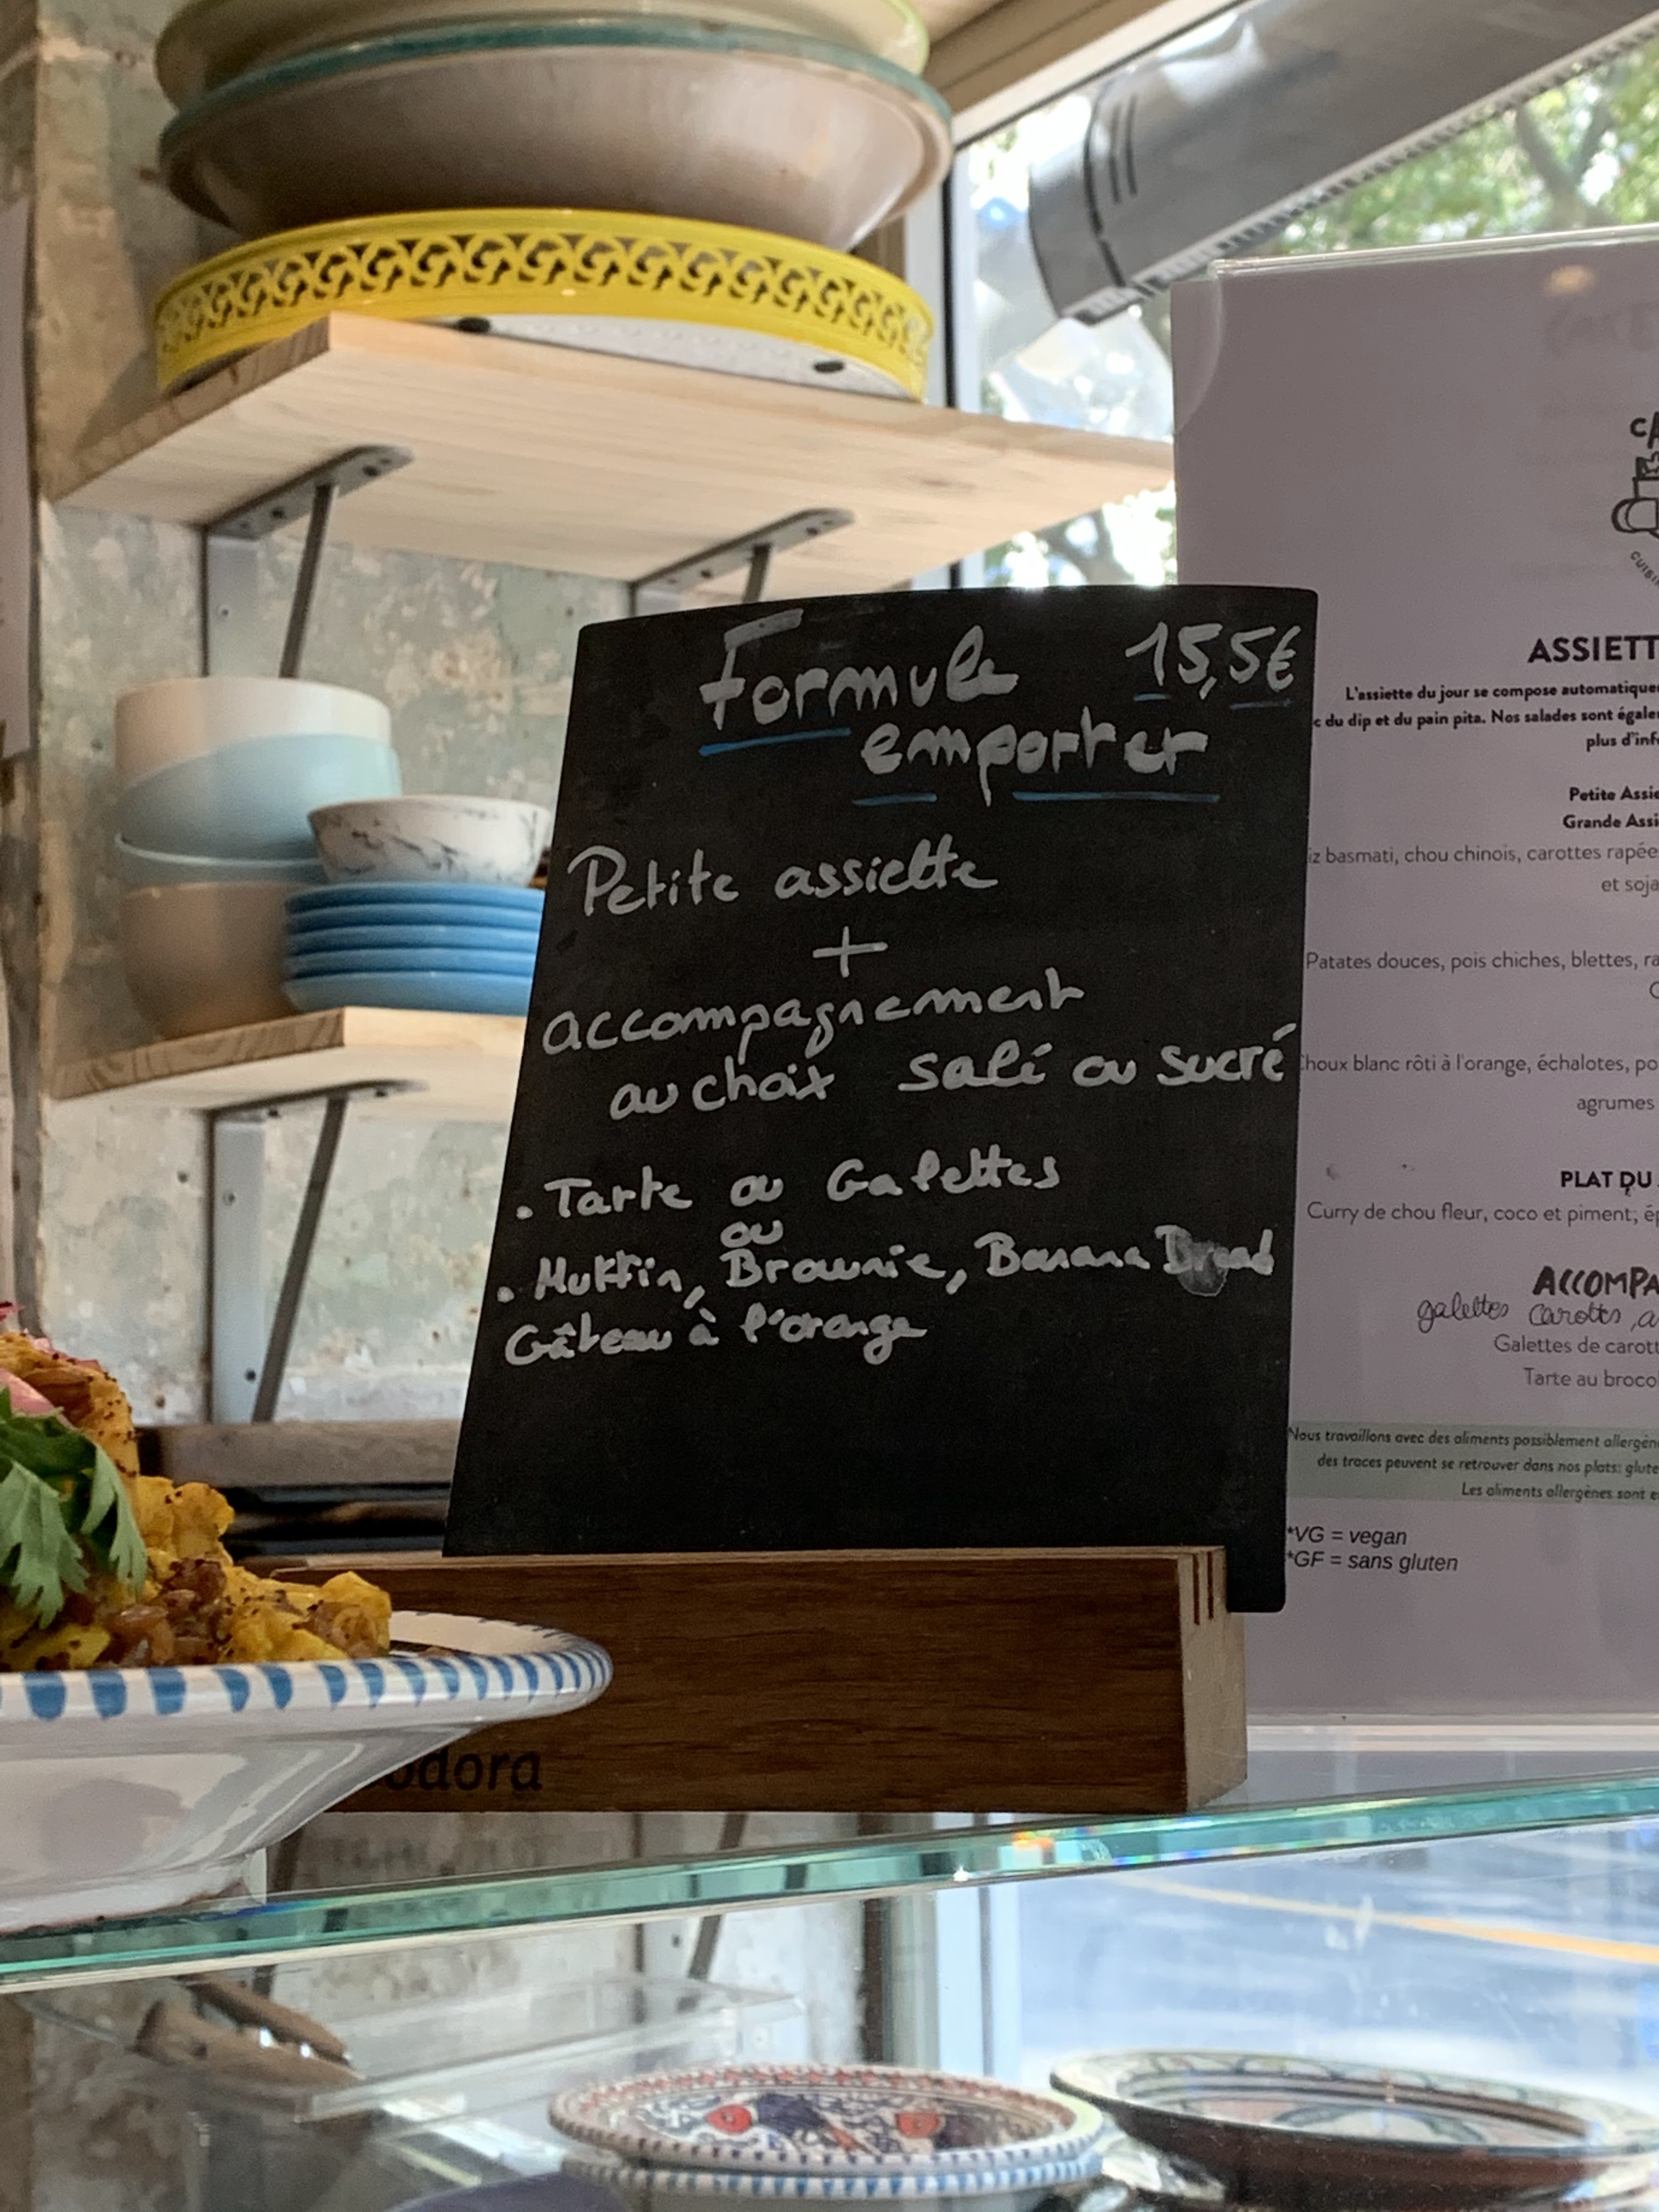 Formule 15,5€
emporter
Petite assiette
+
accompagnement
au choix salé ou sucré
. Tarte ou Galettes
ou
. Muffin, Brownie, Banana Bread
Gâteau à l'orange
odora
ASSIETT
L'assiette du jour se compose automatique
c du dip et du pain pita. Nos salades sont égale
plus d'inf
Petite Assie
Grande Assi
iz basmati, chou chinois, carottes rapée
et soja
Patates douces, pois chiches, blettes, ra
houx blanc rôti à l'orange, échalotes, po
agrumes
PLAT DU
Curry de chou fleur, coco et piment, ép
ACCOMPA
galettes carottes, a
Galettes de carott
Tarte au broco
Nous travaillons avec des aliments possiblement allergèn
des traces peuvent se retrouver dans nos plats: glute
Les aliments allergènes sont e
*VG = vegan
*GF = sans gluten